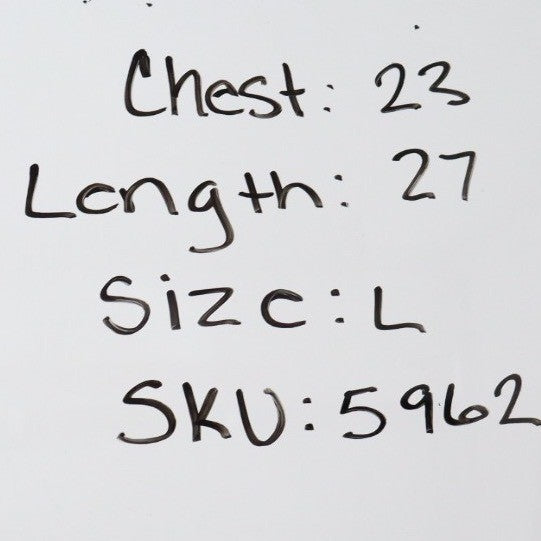 Chest: 23
Length: 27
Size: L
SKU: 5962